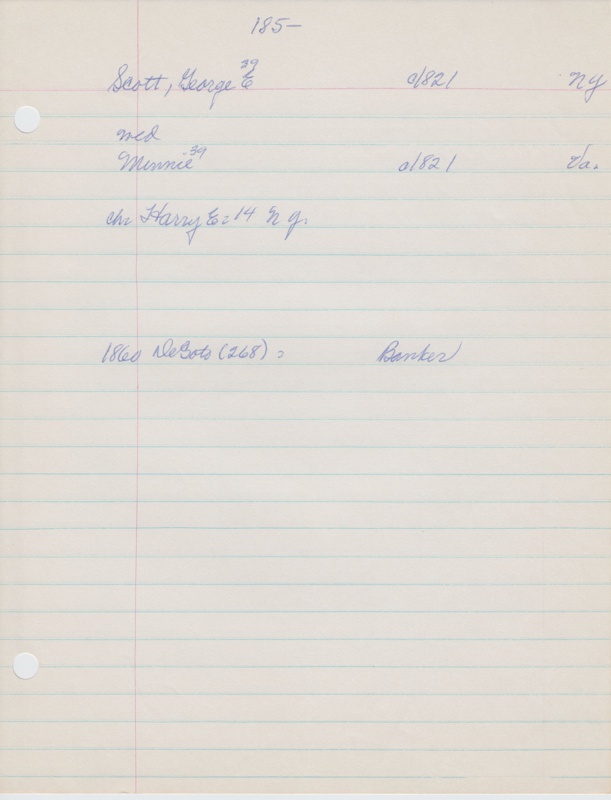 185-
Scott, George E 39 c/1821 NY
med
Minnie 39 c/1821 Va.
ch: Harry E = 14 N Y.
1860 DeSoto (268) : Banker